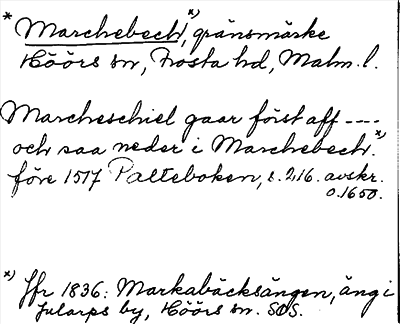 * Marchebech,ˣ⁾ gränsmärke
Höörs sn, Frosta hd, Malm. l.
Marcheschiel gaar först aff ----
och saa neder i Marchebech.ˣ⁾
före 1517 Palteboken, s. 216. avskr.
o. 1650.
ˣ⁾ Jfr 1836: Markabäcksängen, äng i
Jularps by, Höörs sn. SOS.